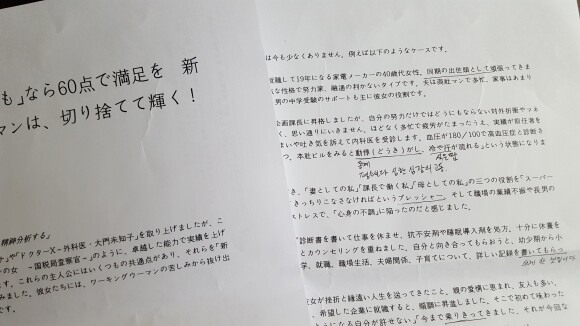 も」なら60点で満足を　新
マンは、切り捨てて輝く！
精神分析する」
」や「ドクターX～外科医・大門未知子」を取り上げましたが、こ
の女　～国税局査察官～」のように、卓越した能力で実績を上げ
ます。これらの主人公にはいくつもの共通点があり、それらを「新
みました。彼女たちには、ワーキングウーマンの苦しみから抜け出
は今も少なくありません。例えば以下のようなケースです。
就職して19年になる家電メーカーの40歳代女性。同期の出世頭として頑張ってきま
な性格で努力家、融通の利かないタイプです。夫は商社マンで多忙、家事はあまり
男の中学受験のサポートも主に彼女の役割です。
企画課長に昇格しましたが、自分の努力だけではどうにもならない対外折衝やマネ
く、思い通りにいきません。ほどなく多忙で疲労がたまったうえ、実績が前任者を
まいや吐き気を訴えて内科医を受診します。血圧が180/100で高血圧症と診断さ
つ、本社ビルをみると動悸（どうき）がし、冷や汗が流れるという状態になりま
き、「妻としての私」「課長で働く私」「母としての私」の三つの役割を「スーパー
きっちりこなさなければというプレッシャー、そして職場の業績不振や長男の
ストレスで、「心身の不調」に陥ったのだと感じました。
診断書を書いて仕事を休ませ、抗不安剤や睡眠導入剤を処方、十分に休養を
とカウンセリングを重ねました。自分と向き合ってもらおうと、幼少期から小
学、就職、職場生活、夫婦関係、子育てについて、詳しい記録を書いてもらっ
女が挫折と縁遠い人生を送ってきたこと、親の愛情に恵まれ、友人も多い、
、希望した企業に就職すると、順調に昇進しました。そこで初めて味わった
ようになる自分が許せない」「今まで乗りきってきました。それが今回な